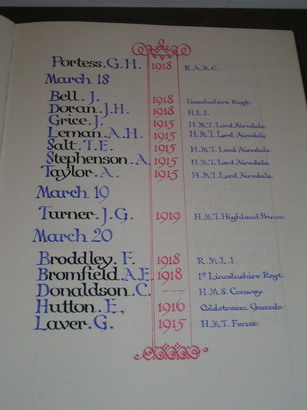 Portess. G. H. 1918 R.A.M.C.
March 18
Bell. J. 1918 Lincolnshire Regt.
Doran. J.H. 1918 H.L.I.
Grice. J. 1915 H.M.T. Lord Airedale
Leman. A.H. 1915 H.M.T. Lord Airedale
Salt. T.E. 1915 H.M.T. Lord Airedale
Stephenson. A. 1915 H.M.T. Lord Airedale
Taylor. A. 1915 H.M.T. Lord Airedale
March 19
Turner. J.G. 1919 H.M.T. Highland Prince
March 20
Broddley. F. 1918 R.M.L.I.
Bromfield. A.E. 1918 1st Lincolnshire Regt.
Donaldson. C. --- H.M.S. Conway.
Hutton. E. 1916 Coldstream Guards
Laver. G. 1915 H.M.T. Ferret.